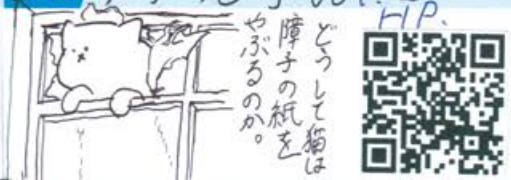 HP.
どうして猫は
障子の紙を
やぶるのか。